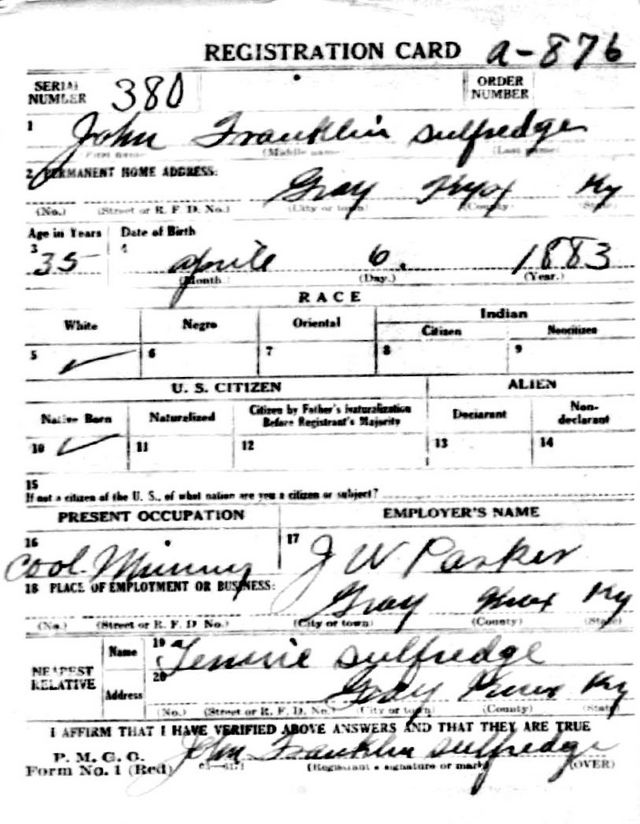 REGISTRATION CARD a-876
SERIAL NUMBER 380 ORDER NUMBER
1 John Franklin Sulfredge
(First name) (Middle name) (Last name)
2 PERMANENT HOME ADDRESS:
Gray Knox Ky
(No.) (Street or R. F. D. No.) (City or town) (County) (State)
Age in Years Date of Birth
3 35 4 Aprile 6. 1883
(Month.) (Day.) (Year.)
RACE
White Negro Oriental Indian
Citizen Noncitizen
5 ✓ 6 7 8 9
U. S. CITIZEN ALIEN
Native Born Naturalized Citizen by Father's Naturalization Before Registrant's Majority Declarant Non-declarant
10 ✓ 11 12 13 14
15
If not a citizen of the U. S., of what nation are you a citizen or subject?
PRESENT OCCUPATION EMPLOYER'S NAME
16 Cool Mining 17 J W Parker
18 PLACE OF EMPLOYMENT OR BUSINESS:
Gray Knox Ky
(No.) (Street or R. F. D. No.) (City or town) (County) (State)
NEAREST RELATIVE
Name 19 Sulfredge
Address 20 Gray Knox Ky
(No.) (Street or R. F. D. No.) (City or town) (County) (State)
I AFFIRM THAT I HAVE VERIFIED ABOVE ANSWERS AND THAT THEY ARE TRUE
P. M. G. O.
Form No. 1 (Red) John Franklin Sulfredge
(Registrant's signature or mark) (OVER)